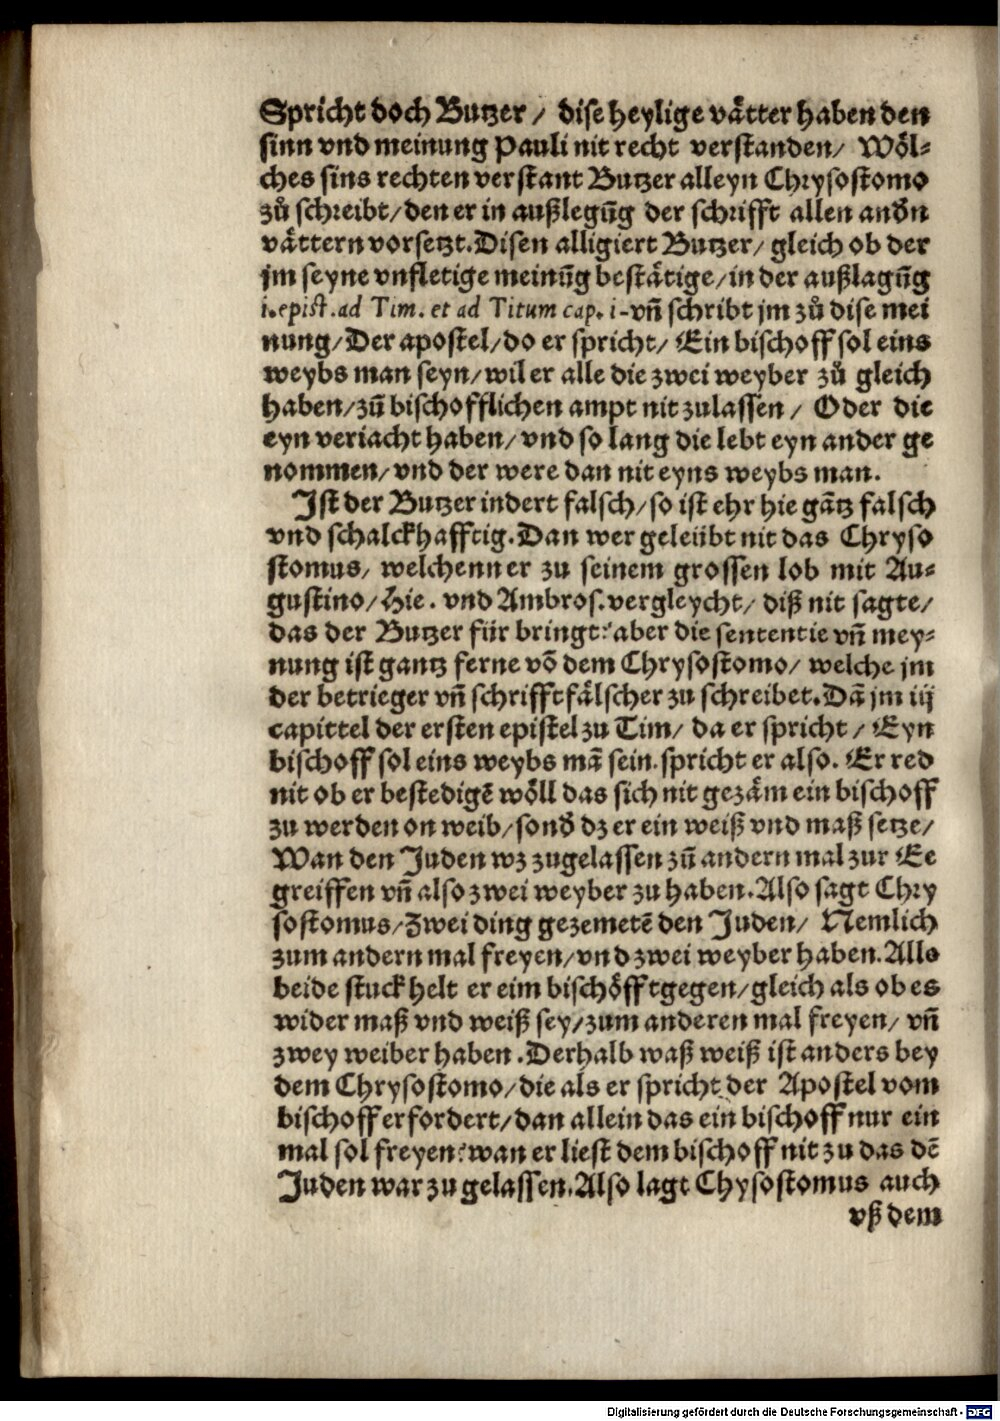 Spricht doch Butzer / dise heylige vaͤtter haben den
sinn vnd meinung Pauli nit recht verstanden / Woͤl⸗
ches sins rechten verstant Butzer alleyn Chrysostomo
zů schreibt / den er in außlegũg der schrifft allen andn̄
vaͤttern vorsetzt. Disen alligiert Butzer / gleich ob der
jm seyne vnfletige meinũg bestaͤtige / in der außlagũg
i. epist. ad Tim. et ad Titum cap. i - vñ schribt jm zů dise mei
nung / Der apostel / do er spricht / Ein bischoff sol eins
weybs man seyn / wil er alle die zwei weyber zů gleich
haben / zũ bischofflichen ampt nit zulassen / Oder die
eyn veriacht haben / vnd so lang die lebt eyn ander ge
nommen / vnd der were dan nit eyns weybs man.
Ist der Butzer indert falsch / so ist ehr hie gãtz falsch
vnd schalckhafftig. Dan wer geleübt nit das Chryso
stomus / welchenn er zu seinem grossen lob mit Au⸗
gustino / Hie. vnd Ambros. vergleycht / diß nit sagte /
das der Butzer für bringt: aber die sententie vñ mey⸗
nung ist gantz ferne võ dem Chrysostomo / welche jm
der betrieger vñ schrifftfaͤlscher zu schreibet. Dã jm iij
capittel der ersten epistel zu Tim / da er spricht / Eyn
bischoff sol eins weybs mã sein. spricht er also. Er red
nit ob er bestedigẽ woͤll das sich nit gezaͤm ein bischoff
zu werden on weib / sond̄ dz er ein weiß vnd maß setze /
Wan den Juden wz zugelassen zũ andern mal zur Ee
greiffen vñ also zwei weyber zu haben. Also sagt Chry
sostomus / Zwei ding gezemetẽ den Juden / Nemlich
zum andern mal freyen / vnd zwei weyber haben. Alle
beide stuck helt er eim bischoͤff tgegen / gleich als ob es
wider maß vnd weiß sey / zum anderen mal freyen / vñ
zwey weiber haben. Derhalb waß weiß ist anders bey
dem Chrysostomo / die als er spricht der Apostel vom
bischoff erfordert / dan allein das ein bischoff nur ein
mal sol freyen: wan er liest dem bischoff nit zu das dẽ
Juden war zu gelassen. Also lagt Chysostomus auch
vß dem
Digitalisierung gefördert durch die Deutsche Forschungsgemeinschaft - DFG